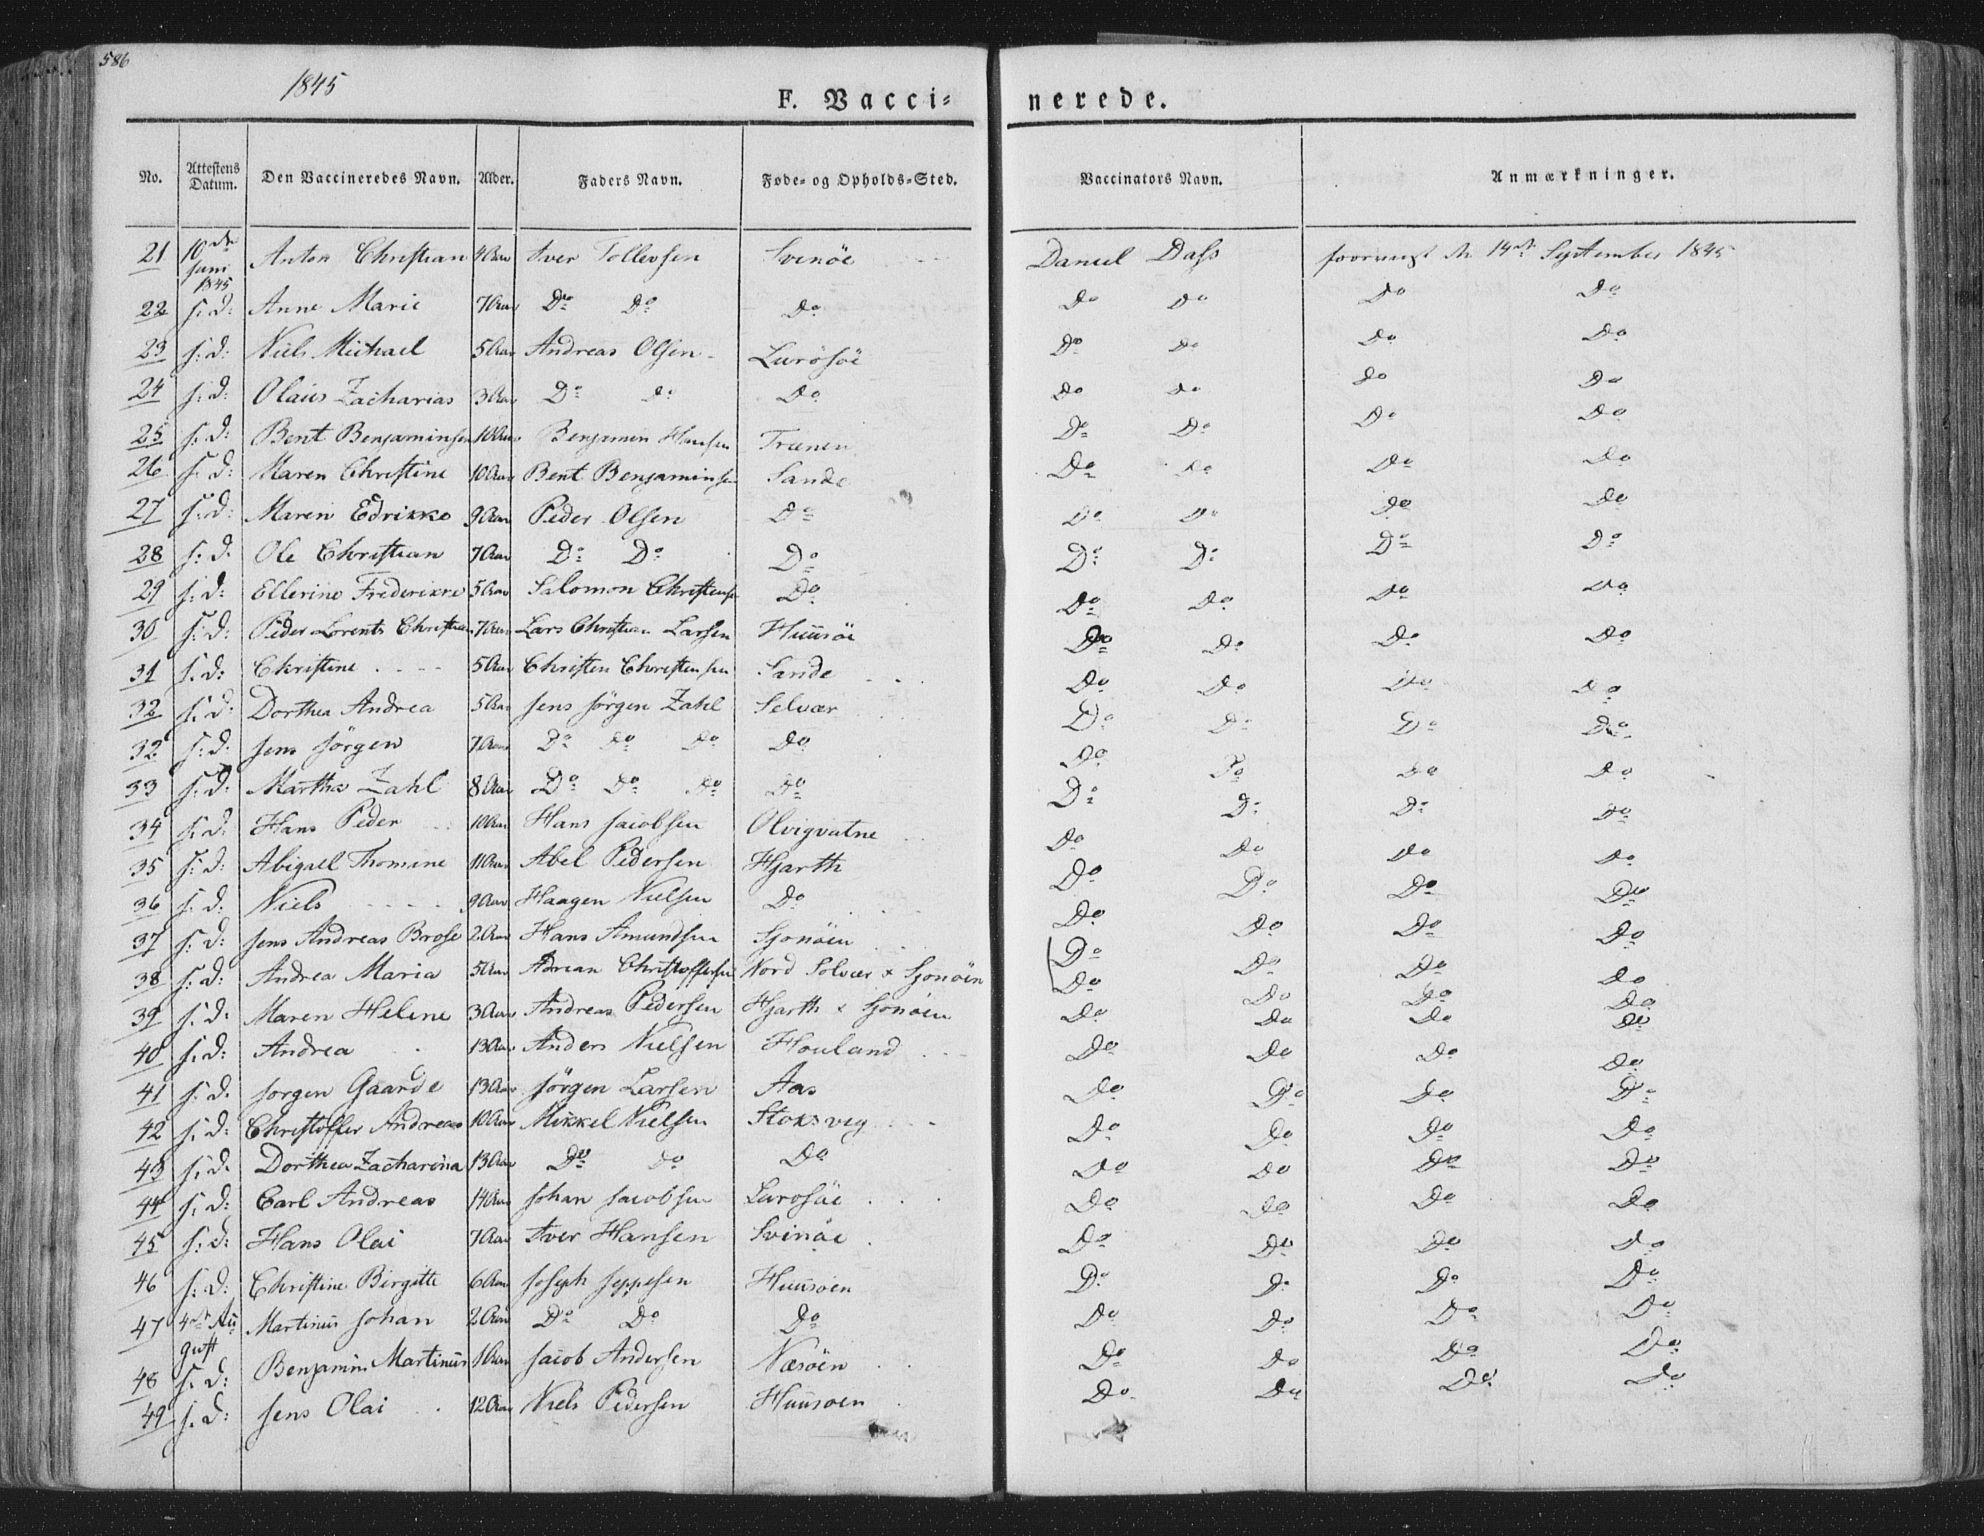 586
1845
F. Vacci- nerede.
No. Attestens Datum. Den Vaccineredes Navn. Alder. Faders Navn. Føde- og Opholds-Sted. Vaccinators Navn. Anmærkninger.
21 10de Juni 1845 Anton Christian 4 Aar Iver Tollevsen Svinöe Daniel Dass foreviist d. 14de September 1845
22 s: d: Anne Marie 7 Aar Do Do Do Do Do Do Do
23 s: d: Niels Michael 5 Aar Andreas Olsen Luröföe Do Do Do Do
24 s: d: Olaus Zacharias 3 Aar Do do Do Do do do Do
25 s: d: Bent Benjaminsen 10 Aar Benjamin Hansen Trænen Do Do Do Do
26 s: d: Maren Christine 10 Aar Bent Benjaminsen Sande Do do Do do
27 s: d: Maren Edrikke 9 Aar Peder Olsen Do Do Do do do
28 s: d: Ole Christian 7 Aar Do Do Do Do Do Do Do
29 s: d: Ellerine Frederikke 5 Aar Salomon Christensen Do Do Do Do Do
30 s: d: Peder Lorents Christian 7 Aar Lars Christian Larsen Huusöe Do Do Do Do
31 s: d: Christine 5 Aar Christen Christensen Sande Do Do Do Do
32 s: d: Dorthea Andrea 5 Aar Jens Jörgen Zahl Selvær Do Do Do Do
32 s: d: Jens Jörgen 7 Aar Do do Do do Do Do Do Do
33 s: d: Martha Zahl 8 Aar Do do Do do Do Do Do Do
34 s: d: Hans Peder 10 Aar Hans Jacobsen Olvigvatne Do Do Do Do
35 s: d: Abigael Thomine 11 Aar Abel Pedersen Hjarth Do Do Do Do
36 s: d: Niels 9 Aar Haagen Nielsen Do Do Do Do Do
37 s: d: Jens Andreas Brose 2 Aar Hans Amundsen Sjonöen Do Do Do Do
38 s: d: Andrea Maria 5 Aar Adrian Christoffersen Nord Solvær & Sjonöen Do Do Do Do
39 s: d: Maren Helene 3 Aar Andreas Pedersen Hjarth & Sjonöen Do Do Do Do
40 s: d: Andrea 13 Aar Anders Nielsen Houland Do Do Do Do
41 s: d. Jorgen Gaarde 13 Aar Jörgen Larsen Aas Do Do Do Do
42 s: d: Christoffer Andreas 10 Aar Mikkel Nielsen Stoksvig Do Do Do Do
43 s: d. Dorthea Zacharina 13 Aar Do do Do Do Do Do Do
44 s: d: Carl Andreas 14 Aar Johan Jacobsen Luroföe Do Do Do Do
45 s: d: Hans Olai 7 Aar Iver Hansen Svinöe Do Do Do Do
46 s: d: Christine Birgitte 6 Aar Joseph Jeppesen Huusöen Do Do Do Do
47 4de August Martinus Johan 2 Aar Do Do Do Do Do Do Do
48 s: d: Benjamin Martinus 1 Aar Jacob Andersen Næsöen Do Do Do Do
49 s: d: Jens Olai 12 Aar Niels Pedersen Huusoen Do Do Do Do